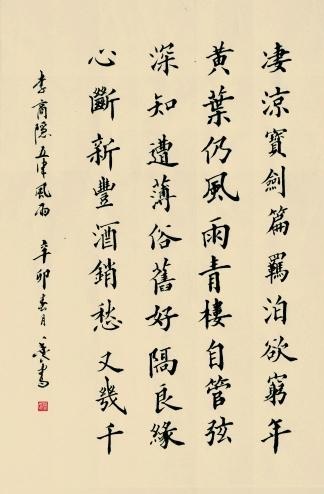 凄涼寶劍篇羈泊欲窮年
黃葉仍風雨青樓自管弦
深知遭薄俗舊好隔良緣
心斷新豐酒銷愁又幾千
李商隱五律風雨 辛卯春月 書